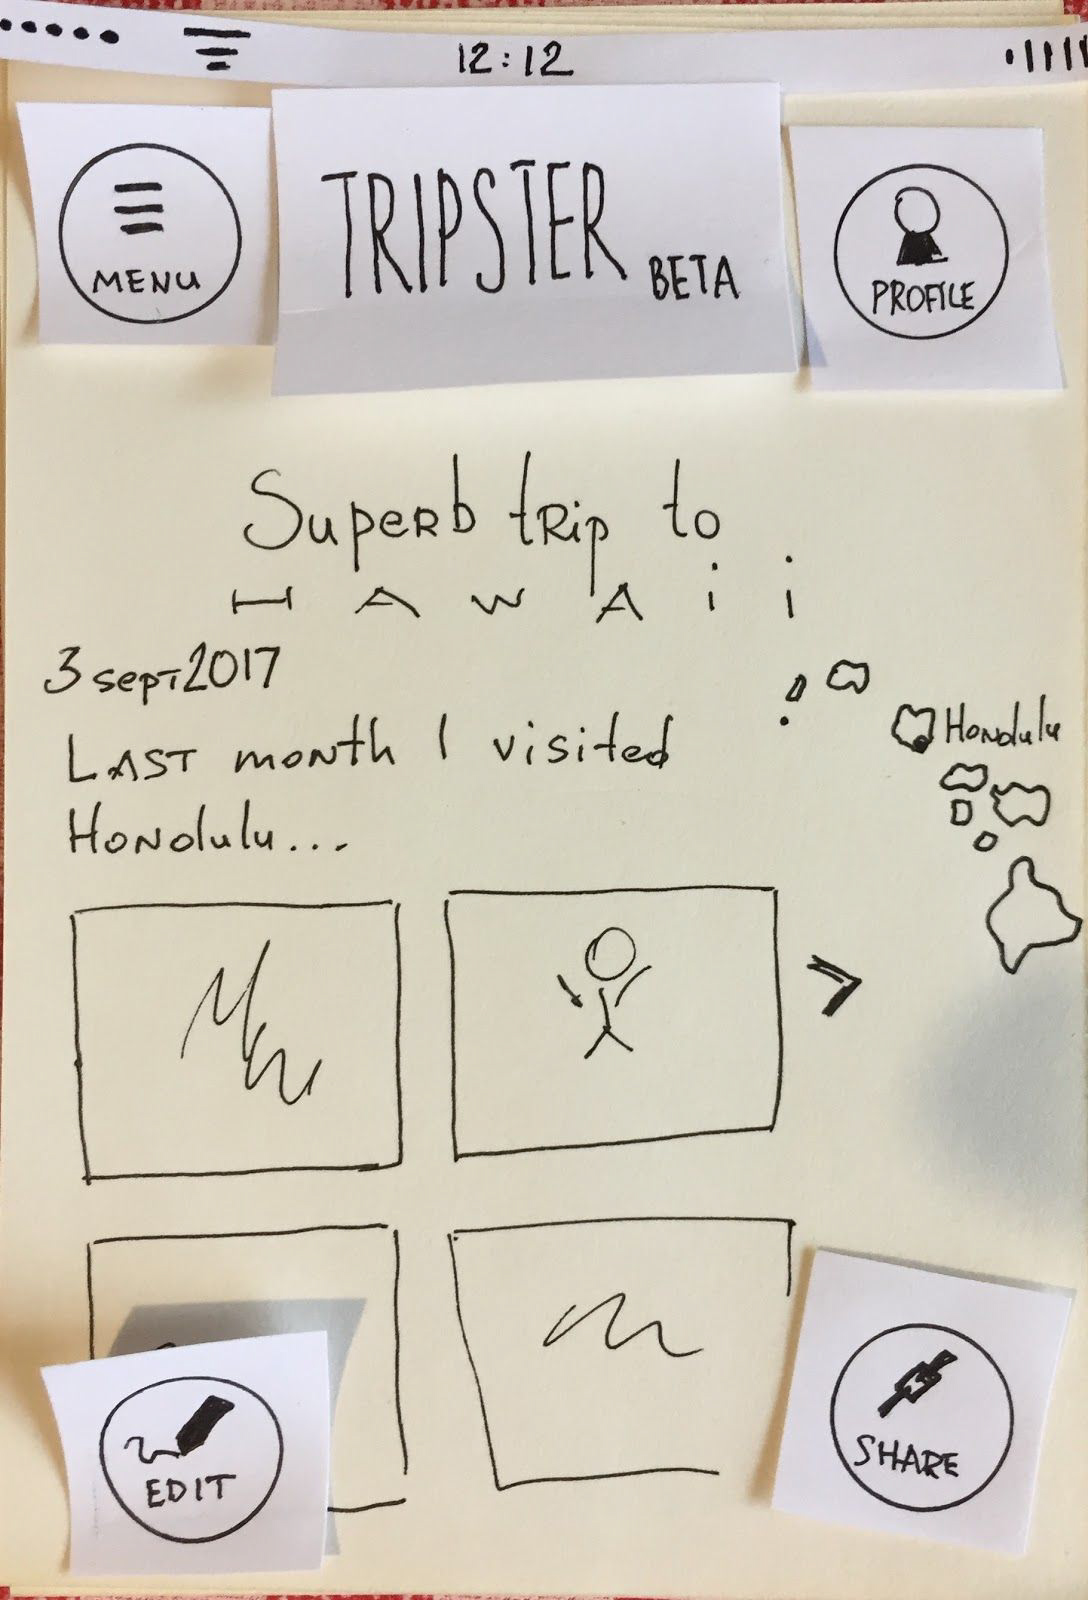 12:12
MENU
TRIPSTER BETA
PROFILE
Superb trip to
HAWAii
3 sept 2017
Last month I visited
Honolulu...
Honolulu
EDIT
SHARE